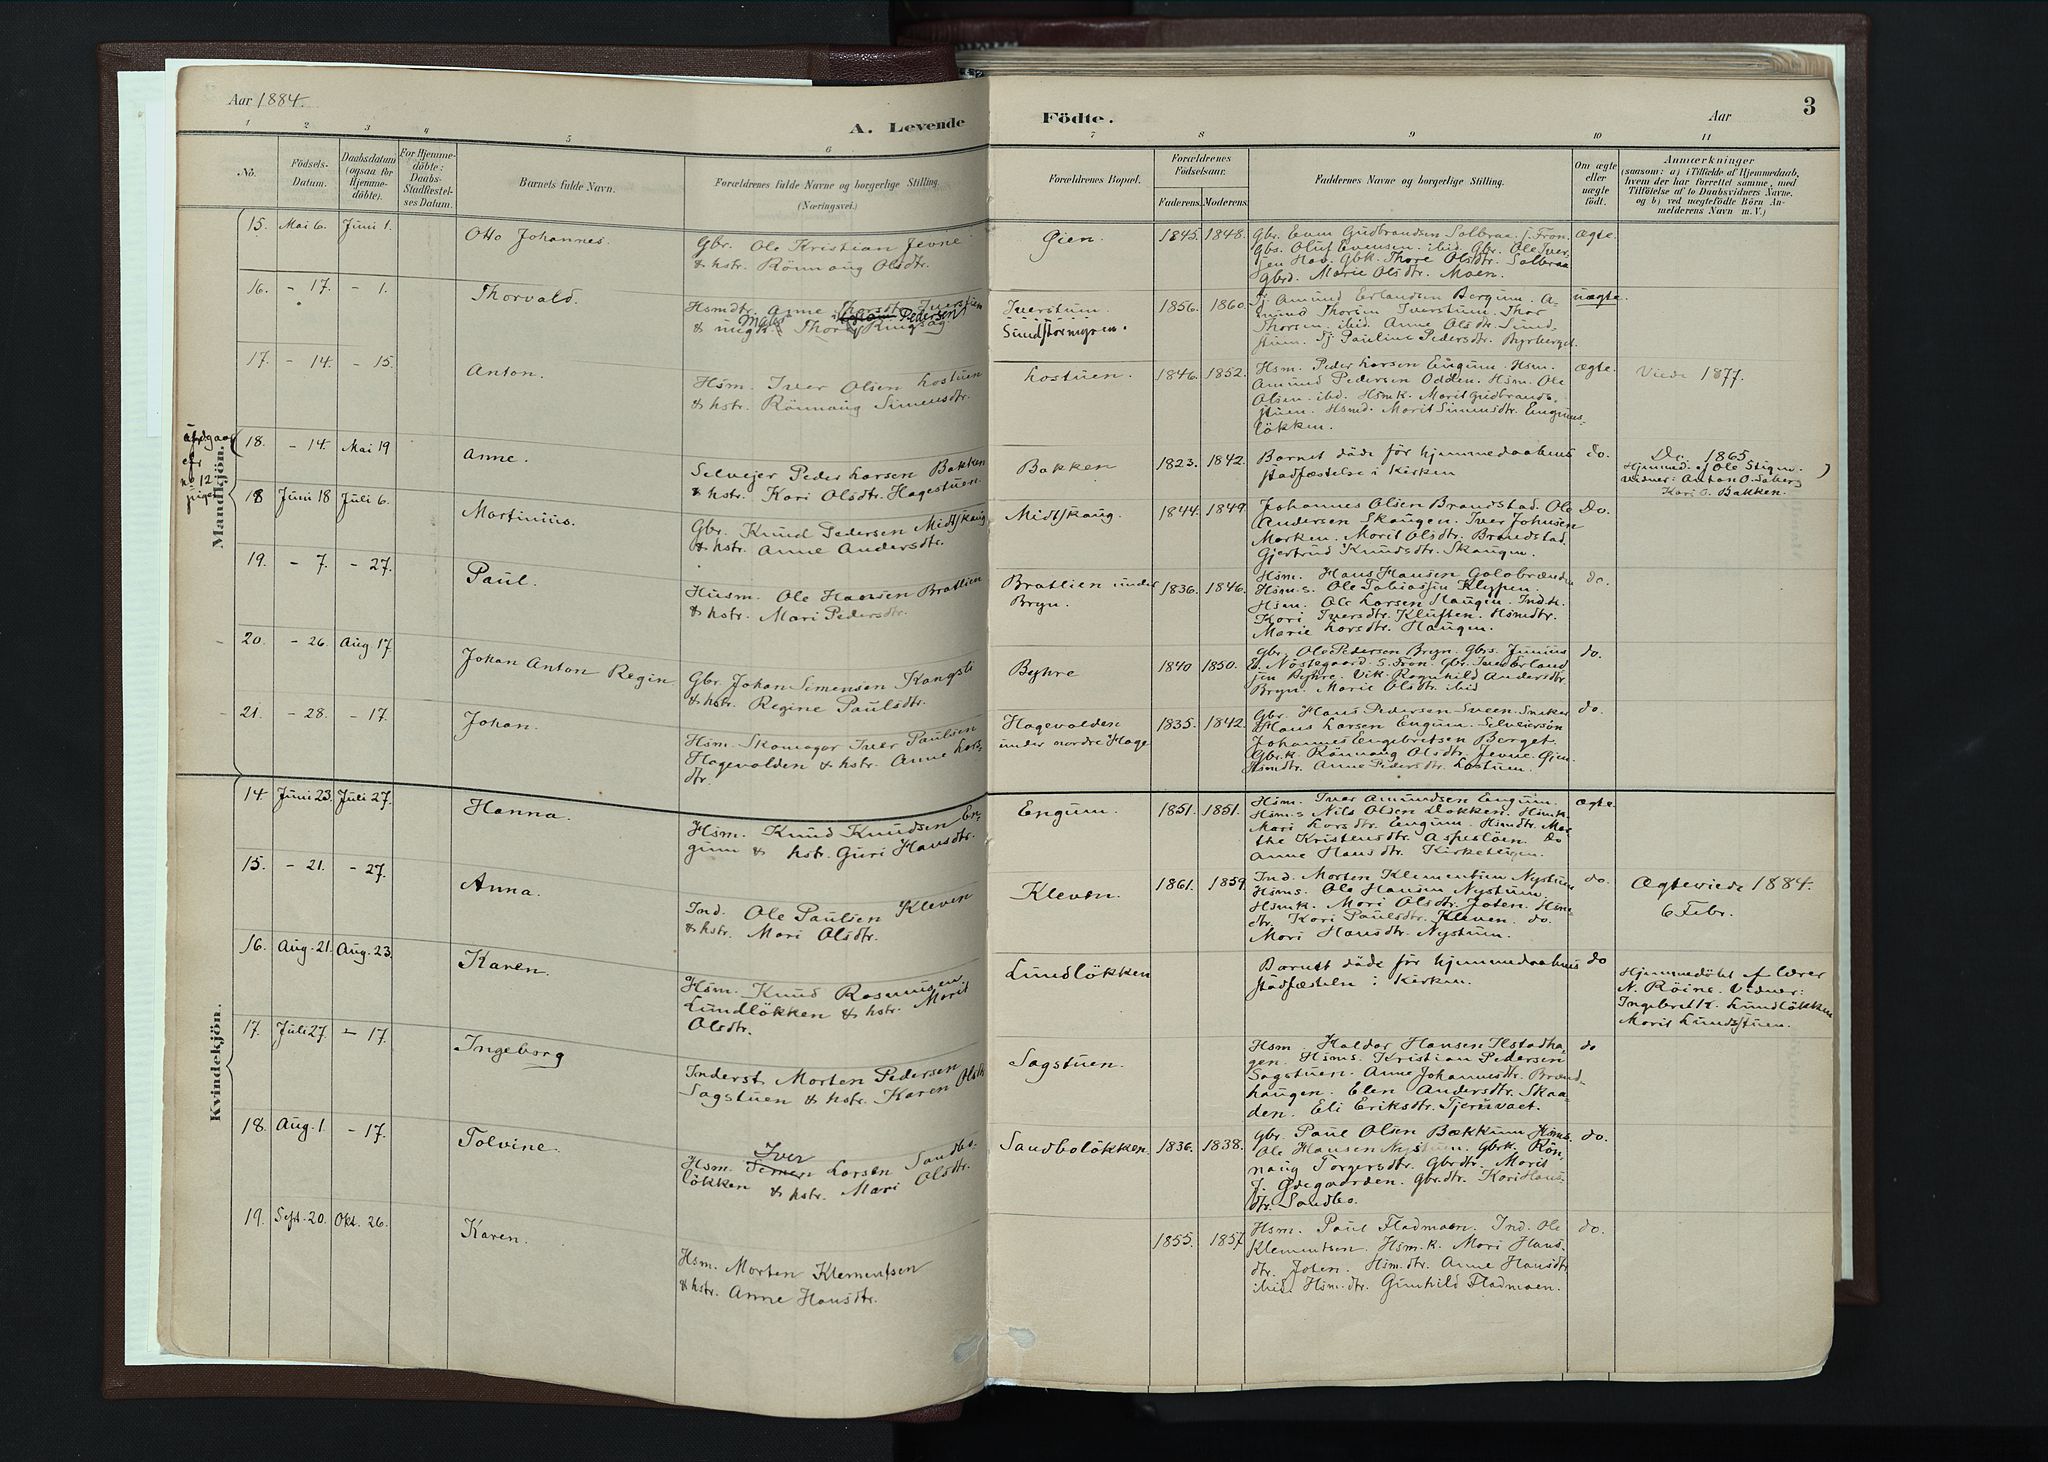 Aar 1884.
A. Levende Födte.
Aar
3
1 2 3 4 5 6 7 8 9 10 11
No.
Födsels-Datum.
Daabsdatum (ogsaa for Hjemmedöbte).
For Hjemmedöbte: Daabs-Stadfæstelses Datum.
Barnets fulde Navn.
Forældrenes fulde Navne og borgerlige Stilling. (Næringsvei.)
Forældrenes Bopæl.
Forældrenes Födselsaar.
Faderens. Moderens.
Faddernes Navne og borgerlige Stilling.
Om ægte eller uægte födt.
Anmærkninger
(saasom: a) i Tilfælde af Hjemmedaab, hvem der har forrettet samme, med Tilföielse af to Daabsvidners Navne, og b) ved uægtefödte Börn Anmelderens Navn m. V.)
Mandkjön.
15. Mai 6. Juni 1. Otto Johannes.
Gbr. Ole Kristian Jevne
& hstr. Rönnaug Olsdtr.
Öien. 1845. 1848.
Gbr. Even Gudbrandsen Solbraa. S. Fron.
Gbs. Oluf Evensen. ibid. Gbr. Ole Iver-
sen Hov. Gbk. Thore Olsdtr. Solbraa
Gbrd. Marie Olsdtr. Moen.
ægte.
16. - 17. - 1. Thorvald.
Hsmdtr. Anne Thorsdtr. Iverstuen
& ungk. Thor Pedersen
Iverstuen.
1856. 1860.
Amund Erlandsen Bergum. A-
mund Thorsen Iverstuen. Thor
Thorsen. ibid. Anne Olsdtr. Sund-
stuen. Pj. Pauline Pedersdtr. Byrberget.
uægte.
17. - 14. - 15. Anton.
Hsm. Iver Olsen Lostuen
& hstr. Rönnaug Simensdtr.
Lostuen. 1846. 1852.
Hsm. Peder Larsen Engum. Hsm.
Amund Pedersen Odden. Hsm. Ole
Olsen. ibid. Hsmk. Marit Gudbrands-
stuen. Hsmd. Marit Simensdtr. Engums-
lökken.
ægte.
Viede 1877.
no 12
18. - 14. Mai 19 Anne.
Selvejer Peder Larsen Bakken
& hstr. Kari Olsdtr. Hagestuen.
Bakken 1823. 1842.
Barnet döde för hjemmedaabens
stadfæstelse i Kirken
do.
Do. 1865
Hjemmed. af Ole Stigen.
Vidner: Anton O. Saberg
Kari O. Bakken.
18 Juni 18 Juli 6. Martinius.
Gbr. Knud Pedersen Midtskaug
& hstr. Anne Andersdtr.
Midtskaug. 1844. 1849.
Johannes Olsen Brandstad. Ole
Andersen Skaugen. Iver Johnsen
Marken. Marit Olsdtr. Brandstad.
Gjertrud Knudsdtr. Skaugen.
Do.
19. - 7. - 27. Paul.
Husm. Ole Hansen Bratlien
& hstr. Mari Pedersdtr.
Bratlien under
Bryn.
1836. 1846.
Hsm. Hans Hansen Golobrænden
Hsm.s. Ole Tobiassen Klypen.
Hsm. Ole Larsen Haugen. Ind.k.
Kari Iversdtr. Kluften. Hsmdtr.
Marie Larsdtr. Haugen.
do.
20. - 26. Aug 17 Johan Anton Regin
Gbr. Johan Simensen Kongsli
& hstr. Regine Paulsdtr.
Byhre 1840 1850.
Gbr. Ole Pedersen Bryn. Gbrs. Junius
O. Nöstegaard. S. Fron. Gbr. Iver Erland
sen Byhre. Vik. Ragnhild Andersdtr.
Bryn. Marie Olsdtr. ibid
do.
21. - 28. - 17. Johan.
Hsm. Skomager Iver Paulsen
Hagevolden & hstr. Anne Lars-
dtr.
Hagevolden
under nordre Hage
1835. 1842.
Gbr. Hans Pedersen Sveen. Snekker
Hans Larsen Engum. Selveiersön
Johannes Engebretsen Berget.
Gbr.k. Rönnaug Olsdtr. Jevne. Öien.
Hsmdtr. Anne Pedersdtr. Lostuen.
do.
Kvindekjön.
14. Juni 23. Juli 27. Hanna.
Hsm. Knud Knudsen En-
gum & hstr. Guri Hansdtr.
Engum. 1851. 1851.
Hsm. Iver Amundsen Engum.
Hsm.s Nils Olsen Dokken. Hsmk.
Mari Larsdtr. Engum. Hsmdtr. Mar-
the Kristensdtr. Aspeslöen. Do
Anne Hansdtr. Kirkestuen.
ægte
15. - 21. - 27. Anna.
Ind. Ole Paulsen Kleven
& hstr. Mari Olsdtr.
Kleven. 1861. 1859.
Ind. Morten Klementsen Nystuen
Hsms. Ole Hansen Nystuen.
Hsmk. Mari Olsdtr. Joten. Hsm-
dtr. Kari Paulsdtr. Kleven. do.
Mari Hansdtr. Nystuen.
do.
Ægteviede 1884.
6 Febr.
16. Aug. 21. Aug. 23. Karen.
Hsm. Knud Rasmusen
Lundlökken & hstr. Marit
Olsdtr.
Lundlökken
Barnet döde för hjemmedaabens
stadfæstelse i Kirken.
do
Hjemmedöbt af Lærer
N. Röine. Vidner:
Ingebret K. Lundlökken
Marit Lundsstuen.
17. Juli 27. - 17. Ingeborg
Inderst Morten Pedersen
Sagstuen & hstr. Karen Olsdtr.
Sagstuen.
Hsm. Haldor Hansen Ilstadha-
gen. Hsms. Kristian Pedersen
Sagstuen. Anne Johannesdtr. Brænd-
haugen. Elen Andersdtr. Skaa-
den. Eli Eriksdtr. Tjernvaet.
do
18. Aug. 1. - 17. Tolvine.
Iver
Hsm. Simen Larsen Sandbo-
lökken & hstr. Mari Olsdtr.
Sandbolökken 1836. 1838.
Gbr. Paul Olsen Bækkum. Hsms.
Ole Hansen Nystuen. Gbrk. Rön-
naug Torgersdtr. Gbrdtr. Marit
J. Ödegaarden. Gbrdtr. Kari Hans-
dtr. Sandbo.
do.
19. Sept. 20. Okt. 26. Karen.
Hsm. Morten Klementsen
& hstr. Anne Hansdtr.
1855. 1857
Hsm. Paul Fladmoen. Ind. Ole
Klementsen. Hsm.k. Mari Hans-
dtr. Joten. Hsm.dtr. Anne Hansdtr
ibid. Hsm.dtr. Gunhild Fladmoen.
do.